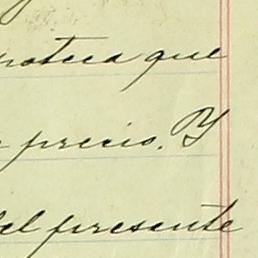 hipoteca que
precio. Y
del presente